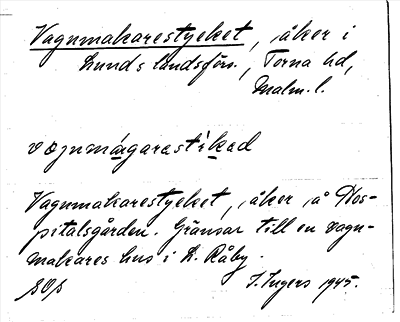 Vagnmakarestycket, åker i
Lunds landsförs., Torna hd,
Malm. l.
vognmágarastikad
Vagnmakarestycket, åker å Hos-
pitalsgården. Gränsar till en vagn-
makares hus i L. Råby.
I. Ingers 1945.